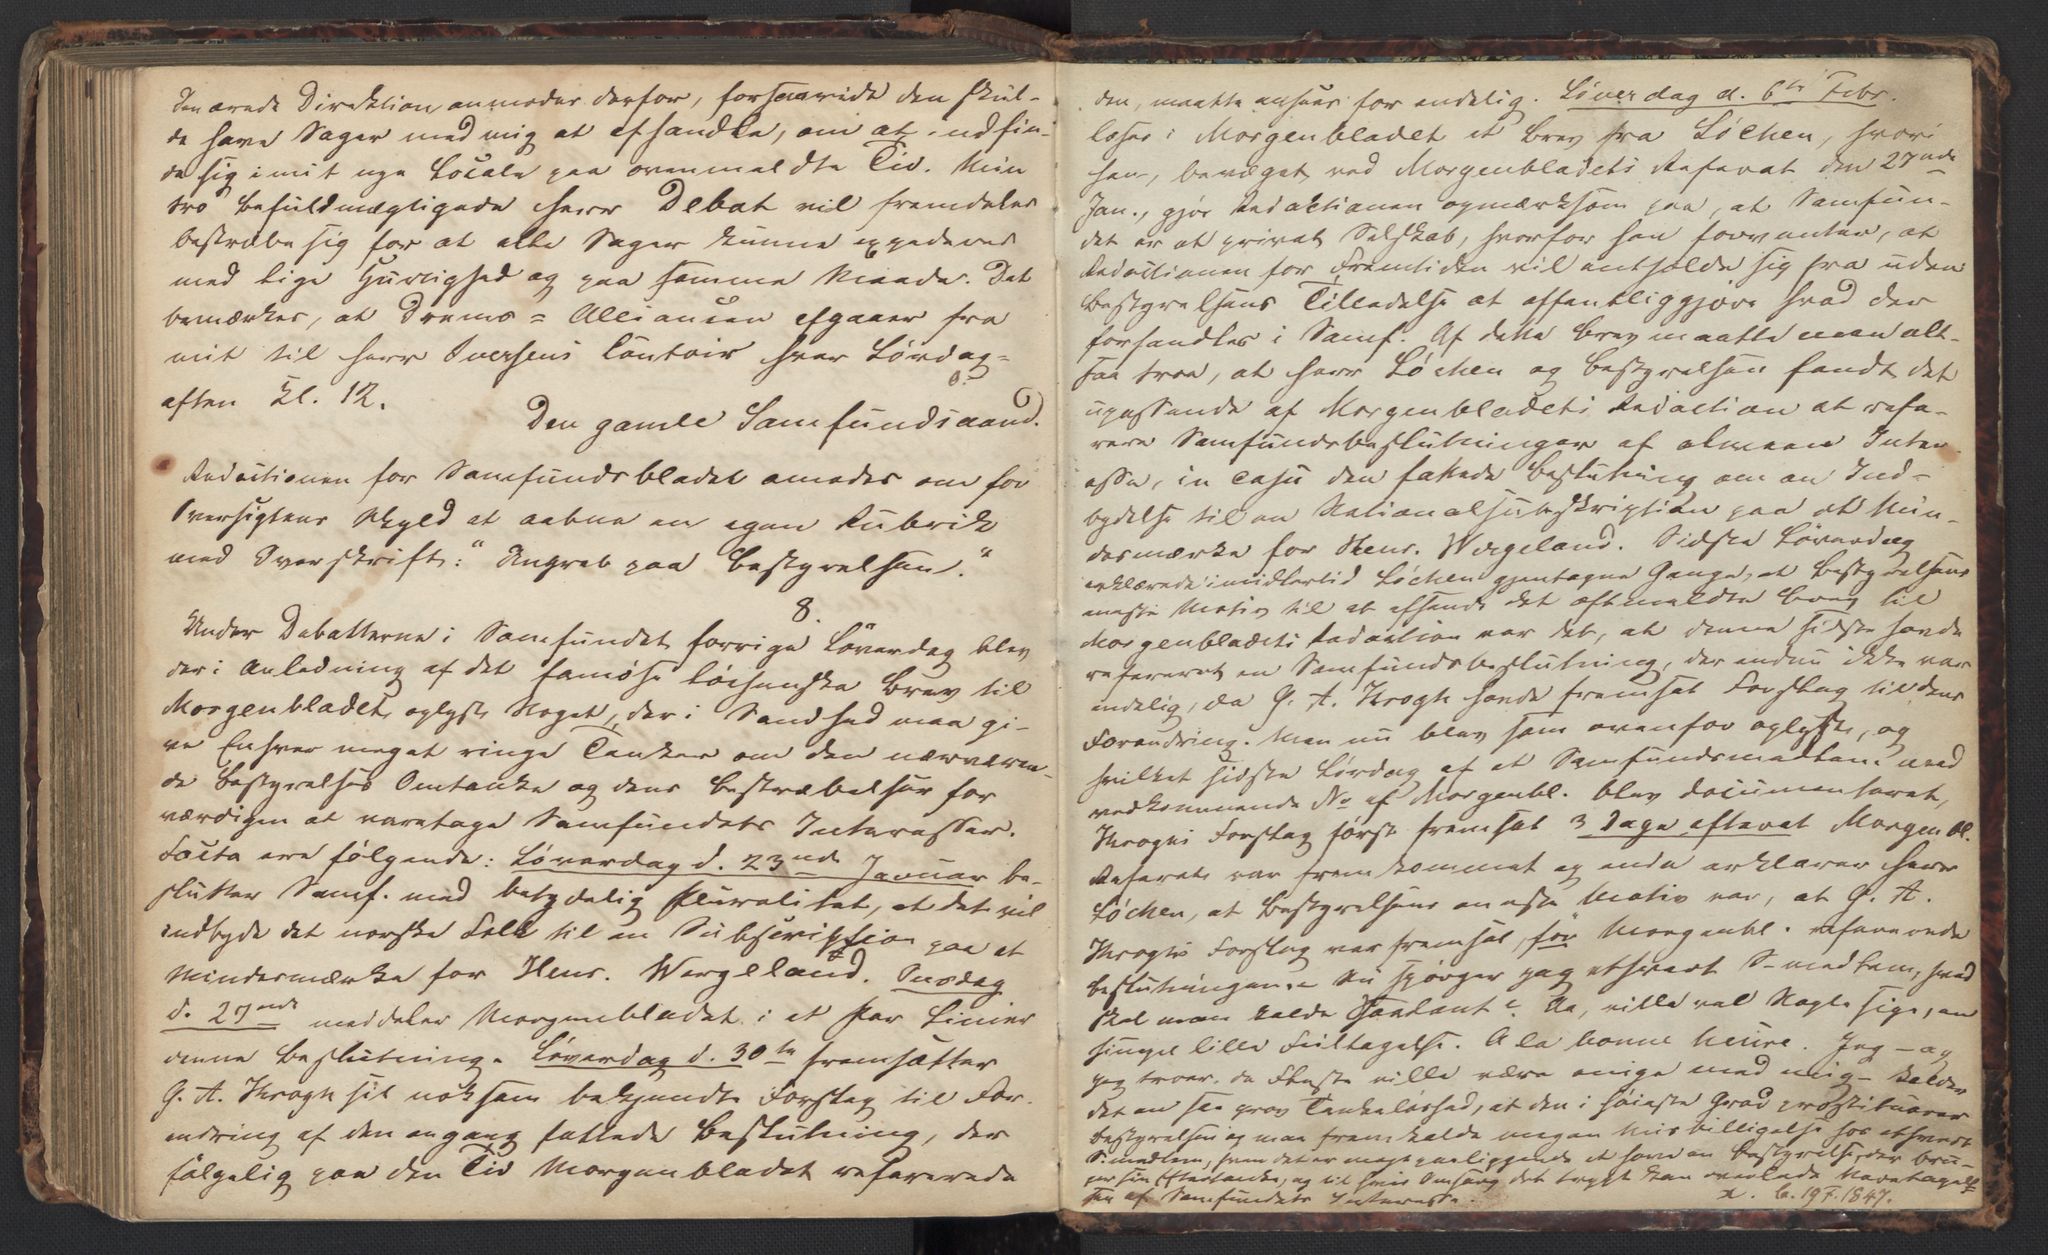 den ærede Direktion anmodes derfor, forsaavidt den skul-
de have Sager med mig at afhandle, om at indfin-
de sig i mit nye Locale paa ovenmeldte Tid. Min
tro befuldmægtigede Herr Debat vil fremdeles
bestræbe sig for at alle Sager kunne expederes
med lige Hurtighed og paa samme Maade. Det
bemærkes, at Drums-Alliancen afgaaer fra
mit til Herr Iversens Contoir hver Lørdag-
aften Kl. 12.
Den gamle Samfundsaand.
Redactionen for Samfundsbladet amodes om for
Oversigtens Skyld at aabne en egen Rubrik
med Overskrift: "Angreb paa Bestyrelsen."
8.
Under Debatterne i Samfundet forrige Løverdag blev
der i Anledning af det famøse Løchenske Brev til
Morgenbladet, oplyst Noget, der i Sandhed maa gi-
ve Enhver meget ringe Tanker om den nærværen-
de Bestyrelses Omtanke og dens Bestræbelser for
værdigen at varetage Samfundets Interesser.
Facta ere følgende: Løverdag d. 23nde Januar be-
slutter Samf. med betydelig Pluralitet, at det vil
indbyde det norske Folk til en Subscription paa et
Mindesmærke for Henr. Wergeland. Onsdag
d. 27nde meddeler Morgenbladet i et Par Linier
denne Beslutning. Løverdag d. 30te fremsætter
G. A. Krogh sit noksom bekjendte Forslag til For-
andring af den engang fattede Beslutning, der
følgelig paa den Tid Morgenbladet refererede
den, maatte ansees for endelig. Løverdag d. 6te Febr.
læses i Morgenbladet et Brev fra Løchen, hvori
han, bevæget ved Morgenbladets Referat den 27nde
Jan., gjør Redaktionen opmærksom paa, at Samfun-
det er et privat Selskab, hvorfor han forventer, at
Redactionen for Fremtiden vil entholde sig fra uden
Bestyrelsens Tilladelse at offentliggjøre hvad der
forhandles i Samf. Af dette Brev maatte man alt-
saa troe, at Herr Løchen og Bestyrelsen fandt det
upassende af Morgenbladets Redaction at refe-
rere Samfundsbeslutninger af almeen Inter-
esse, in casu den fattede Beslutning om en Ind-
bydelse til en Nationalsubskription paa et Min-
desmærke for Henr. Wergeland. Sidste Løverdag
erklærede imidlertid Løchen gjentagne Gange, at Bestyrelsens
eneste Motiv til at afsende det ommeldte Brev til
Morgenbladets Redaction var det, at denne sidste havde
refereret en Samfundsbeslutning, der endnu ikke var
endelig, da G. A. Krogh havde fremsat Forslag til dens
Forandring. Men nu blev som ovenfor oplyst, og
hvilket sidste Lørdag af et Samfundsmedlem med
vedkommende No af Morgenbl. blev documenteret,
Kroghs Forslag først fremsat 3 Dage efterat Morgenbl.
Referat var fremkommet og endda erklærer Herr
Løchen, at Bestyrelsens eneste Motiv var, at G. A.
Kroghs Forslag var fremsat, før Morgenbl. refererede
Beslutningen. Nu spørger jeg ethvert S-medlem, hvad
skal man kalde Saadant? Aa, ville vel Nogle sige, en
simpel lille Feiltagelse. A la bonne heure. Jeg — og
jeg troer, de Fleste ville være enige med mig — kalder
det en saa grov Tankeløshed, at den i høieste Grad prostituerer
Bestyrelsen og maa fremkalde megen Misbilligelse hos ethvert
S-medlem, hvem det er magtpaaliggende at have en Bestyrelse, der bru-
ger sin Eftertanke, og til hvis Omsorg det trygt kan overlade Varetagel-
sen af Samfundets Interesse.
x. b. 19 F. 1847.